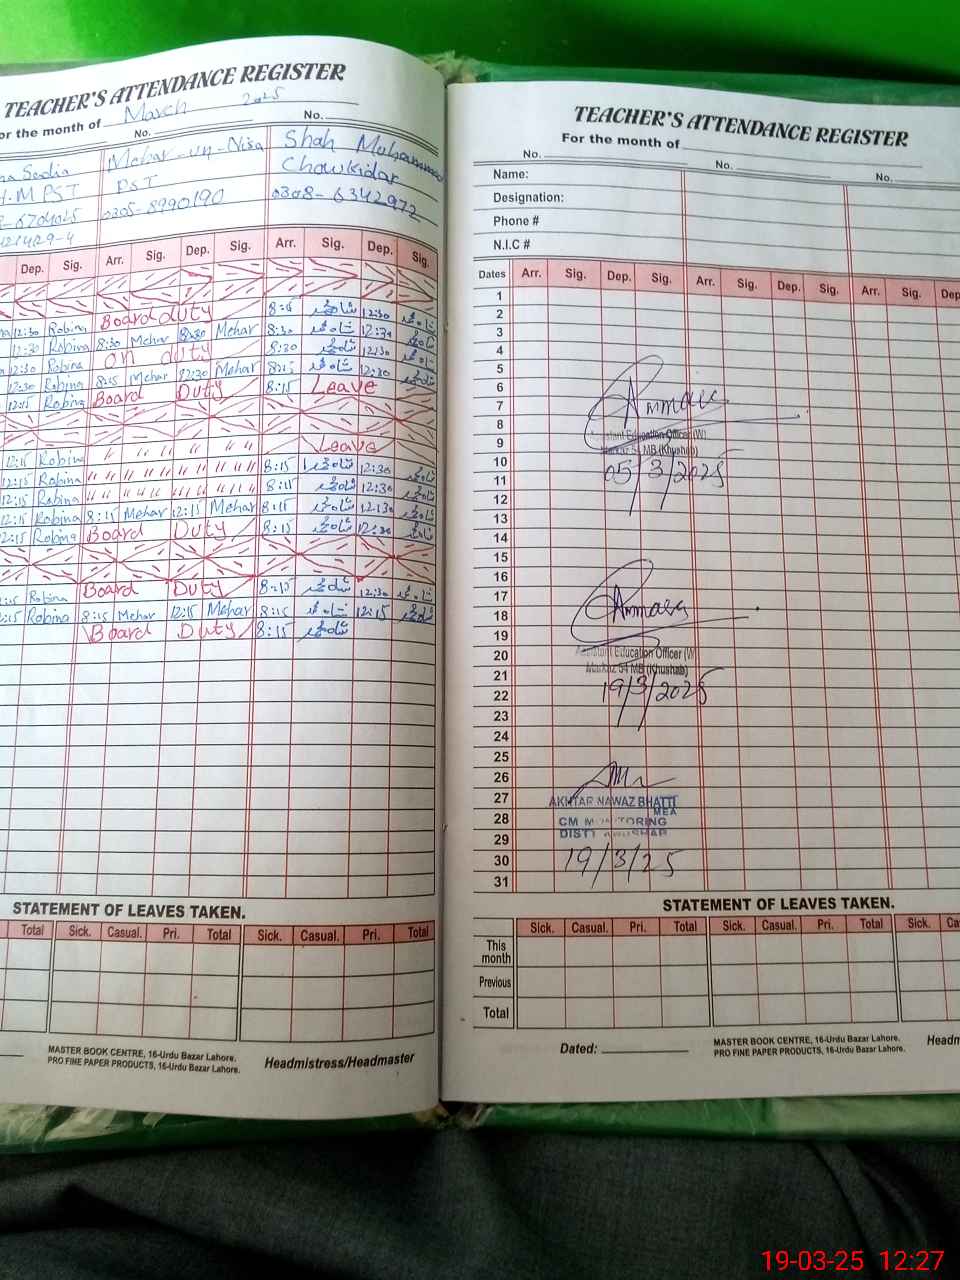 TEACHER'S ATTENDANCE REGISTER
or the month of March 2025
No. No.
Mehar-un-Nisa Shah Muhammad
H.M PST PST Chowkidar
0305-8990190 0308-6342972
Dep. Sig. Arr. Sig. Dep. Sig. Arr. Sig. Dep. Sig.
Board duty 8:15 12:30
12:30 Robina 8:30 Mehar Mehar 8:30 12:30
12:30 Robina on duty 8:30 12:30
12:30 Robina 8:15 Mehar 12:30 Mehar 12:30
12:15 Robina Board Duty 8:15 Leave
12:15 Robina " " " " Leave
12:15 Robina " " " " " " " " " 8:15 12:30
12:15 Robina " " " " " " " " " 8:15 12:30
12:15 Robina 8:15 Mehar 12:15 Mehar 8:15 12:30
12:15 Robina Board Duty 8:15 12:30
Robina Board Duty 8:15 12:30
Robina 8:15 Mehar 12:15 Mehar 8:15 12:15
Board Duty 8:15
STATEMENT OF LEAVES TAKEN.
Total Sick. Casual. Pri. Total Sick. Casual. Pri. Total
MASTER BOOK CENTRE, 16-Urdu Bazar Lahore.
PRO FINE PAPER PRODUCTS, 16-Urdu Bazar Lahore.
Headmistress/Headmaster
TEACHER'S ATTENDANCE REGISTER
For the month of
No. No. No.
Name:
Designation:
Phone #
N.I.C #
Dates Arr. Sig. Dep. Sig. Arr. Sig. Dep. Sig. Arr. Sig. Dep
1
2
3
4
5
6
7
8
9
10
11
12
13
14
15
16
17
18
19
20
21
22
23
24
25
26
27
28
29
30
31
Assistant Education Officer (W)
Markaz 54 MB (Khushab)
05/3/2025
Assistant Education Officer (W)
Markaz 54 MB (Khushab)
19/3/2025
AKHTAR NAWAZ BHATTI
MEA
CM MONITORING
19/3/25
STATEMENT OF LEAVES TAKEN.
Sick. Casual. Pri. Total Sick. Casual. Pri. Total Sick. Ca
This month
Previous
Total
Dated:
MASTER BOOK CENTRE, 16-Urdu Bazar Lahore.
PRO FINE PAPER PRODUCTS, 16-Urdu Bazar Lahore.
Headm
19-03-25 12:27